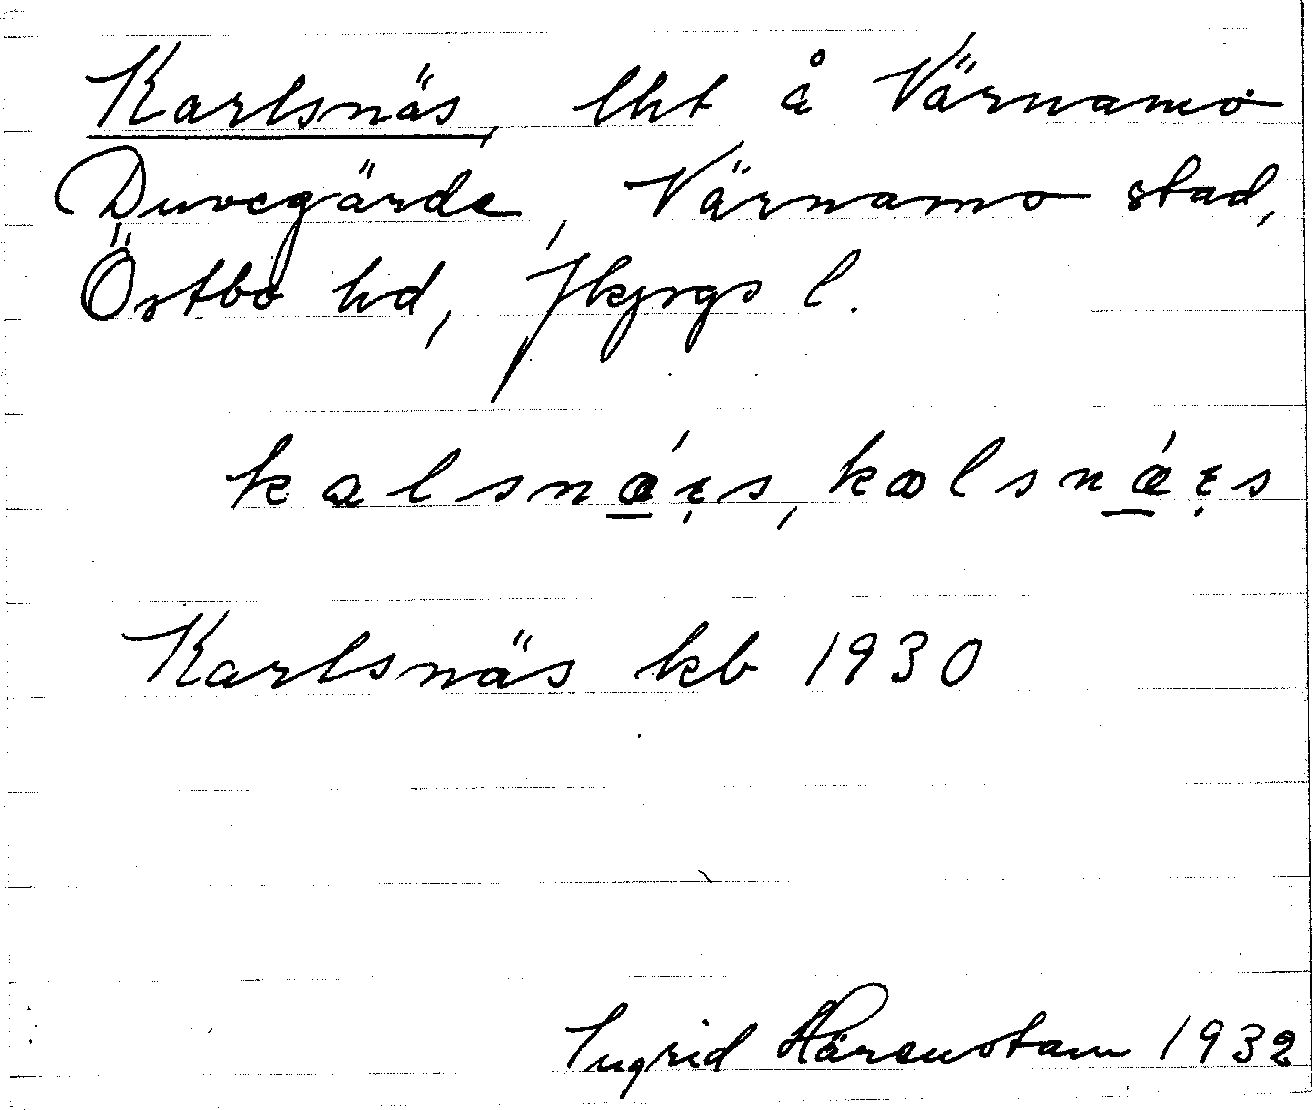 Karlsnäs, lht å Värnamo
Duvegärde, Värnamo stad,
Östbo hd, Jkpgs l.
kalsnǽs, kalsnǽs
Karlsnäs kb 1930
Ingrid Härenstam 1932